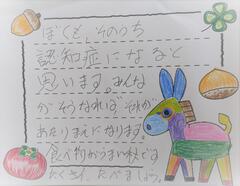 ぼくも、そのうち
認知症になると
思います。みんな
がそうなればそれが
あたりまえになります。
食べ物がうまい秋です
たくさんたべましょう。